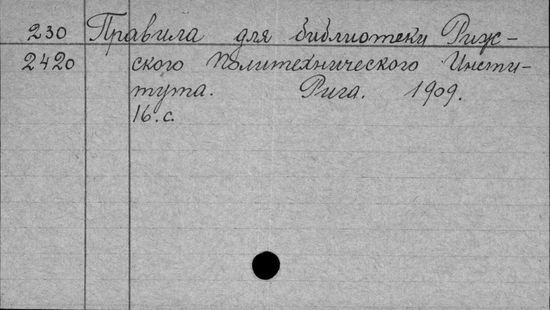 230 Правила для библиотеки Риж-
2420 ского Политехнического Инсти-
тута. Рига. 1909.
16.с.